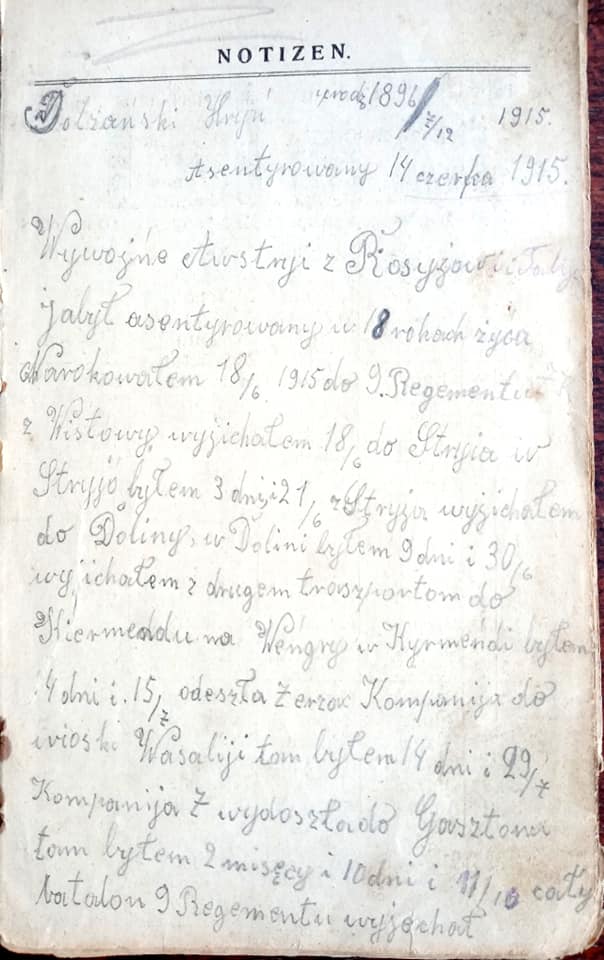 NOTIZEN.
Dolżański Hryń urodz 1896 7/12 1915.
Asentyrowany 14 czerfca 1915.
Wywojne Awstryi z Rosyjow i
jabył asentyrowany w 18 rokach życa
Narokowałem 18/6 1915 do 9. Regementu
z Wistowy wyjichałem 18/6 do Stryia w
Stryjó byłem 3 dni i 21/6 z Stryja wyjichałem
do Doliny, w Dolini byłem 9 dni i 30/6
wyjichałem z drugem trasportom do
Kiermendu na Wengry w Kyrmendi byłem
14 dni i 15/7 odeszła Kompanija do
wioski Wasaliji tam byłem 14 dni i 29/7
Kompanija 7 wydoszła do Gasztona
tam byłem 2 misęcy i 10 dni i 11/10 cały
batalon 9 Regementu wyjechał